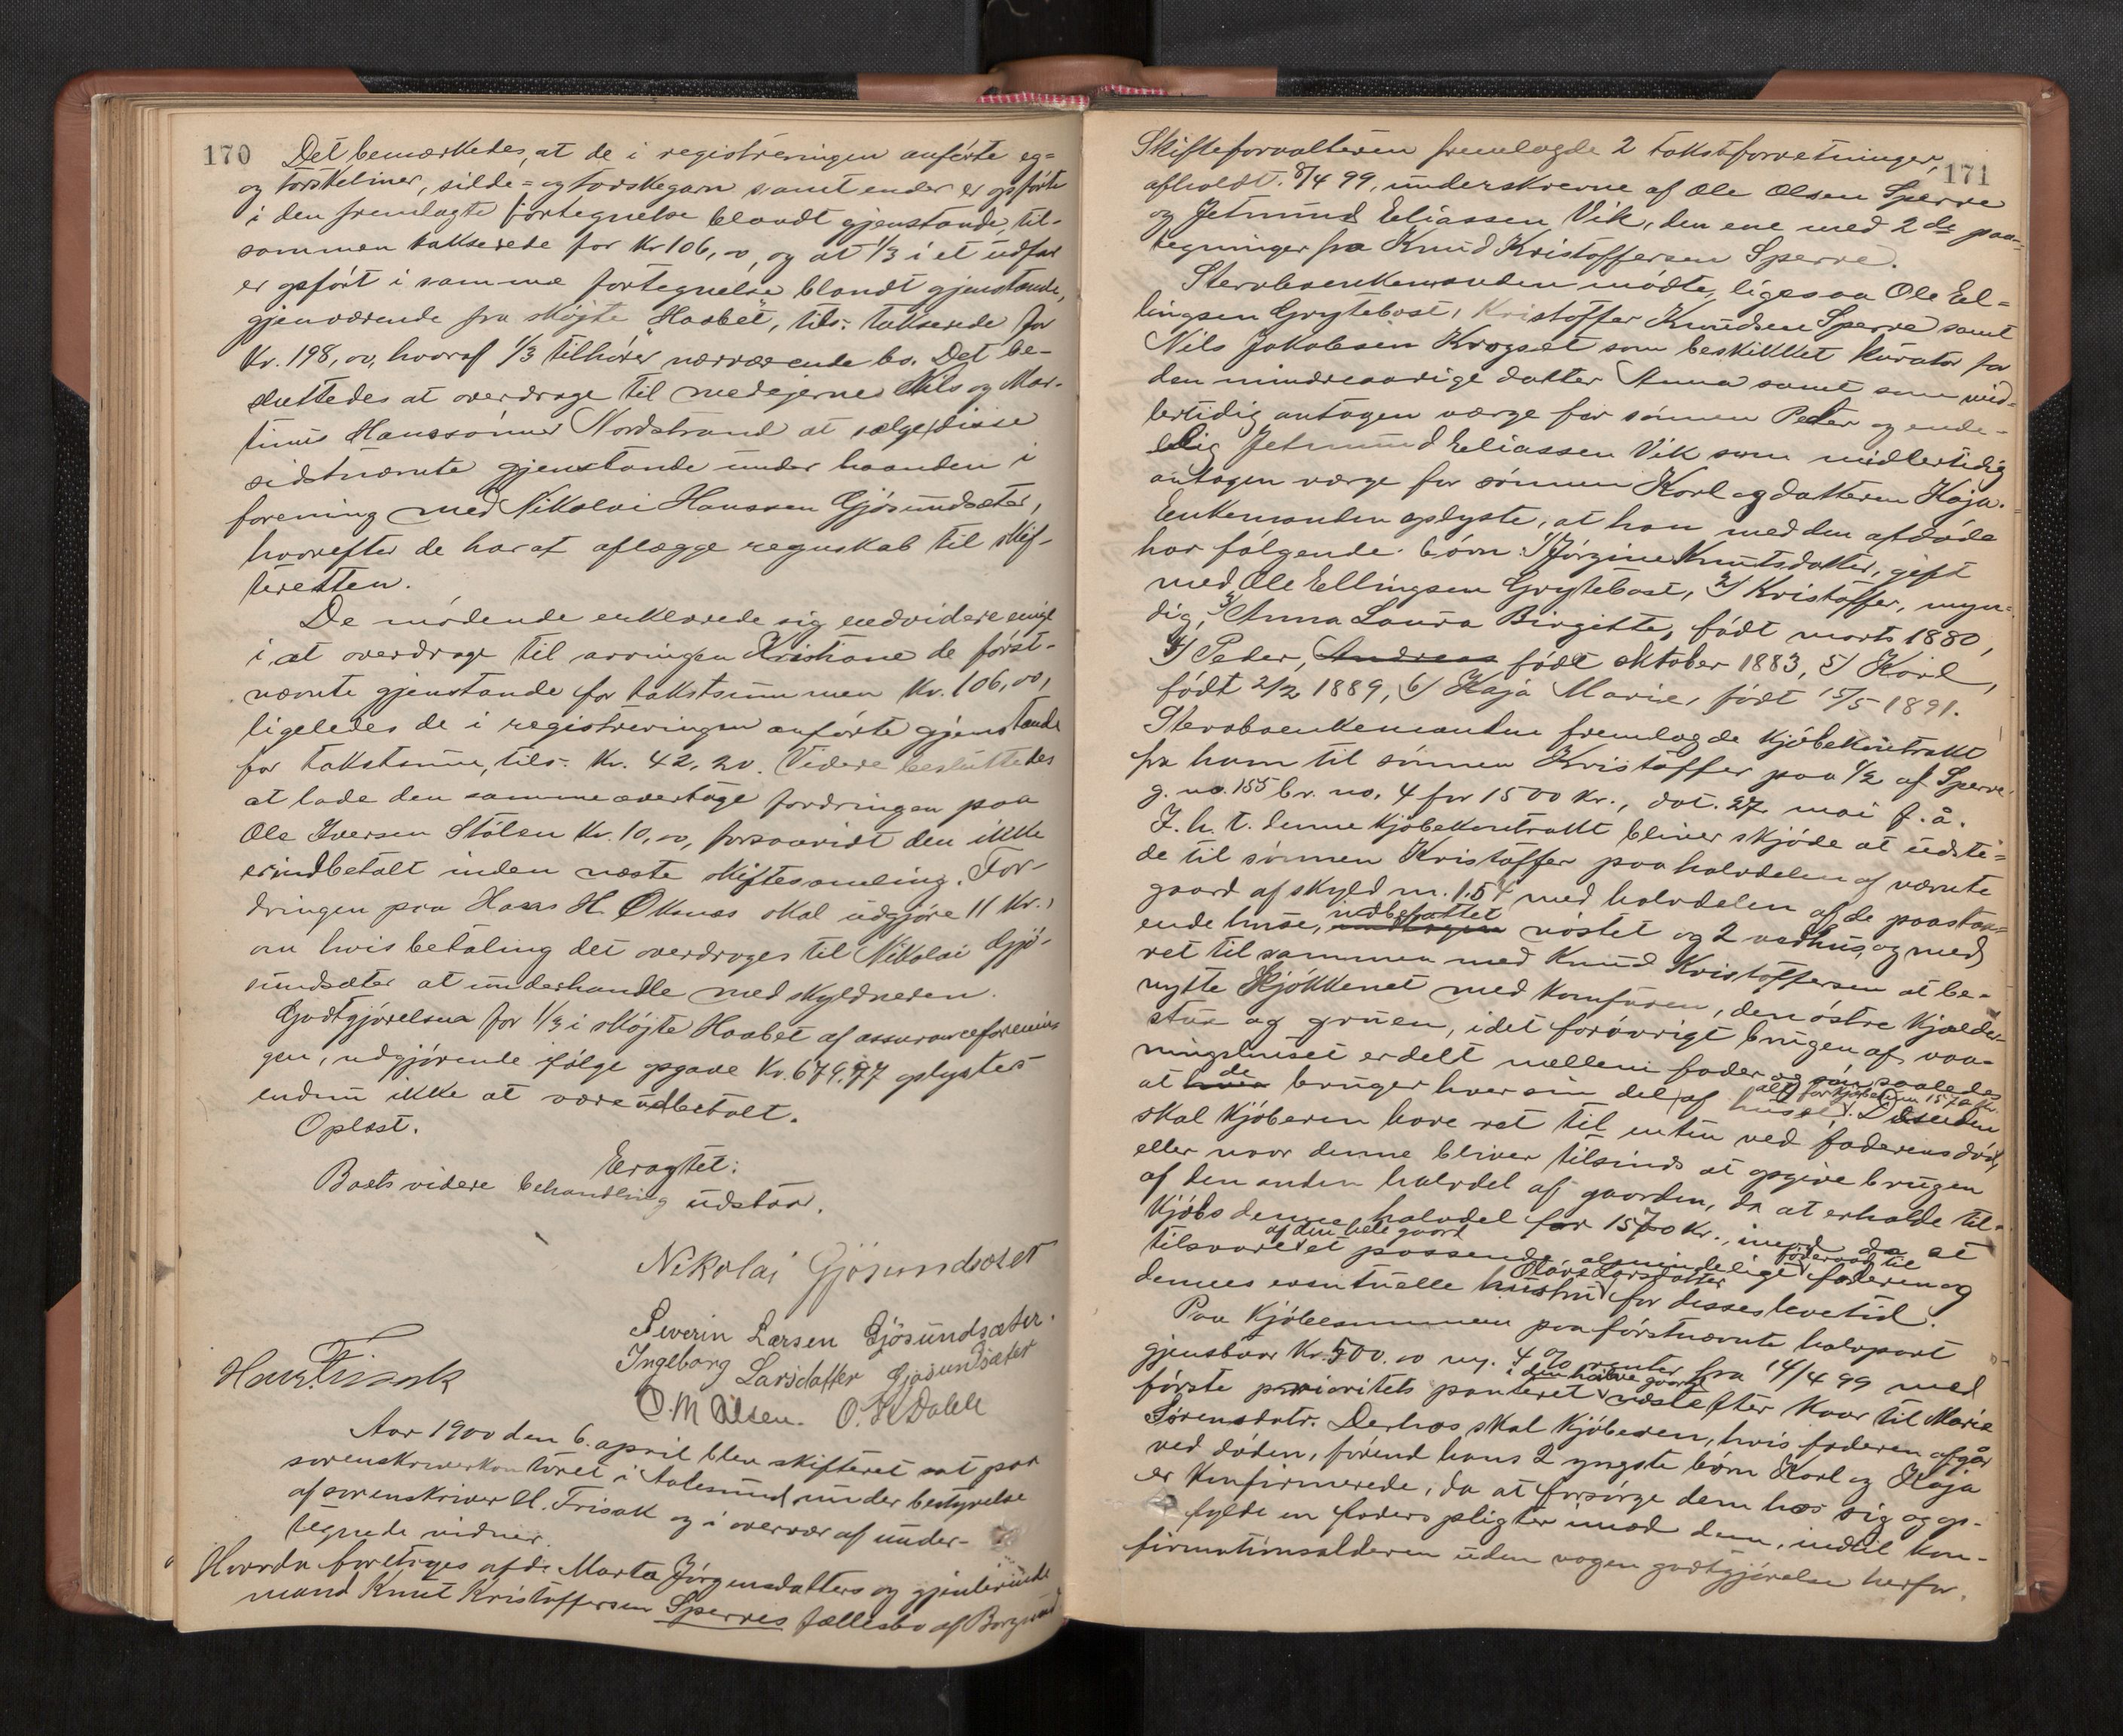 170
Det bemærkedes, at de i registreringen anførte eg=
og torskeliner, silde= og torskegarn samt ender er opførte
i den fremlagte fortegnelse blandt gjenstande, til-
sammen takserede for Kr 106,00, og at 1/3 i et udfar
er opført i samme fortegnelse blandt gjenstande,
gjenværende fra skøjte "Haabet", tils. takserede for
Kr. 198,00, hvoraf 1/3 tilhører nærværende bo. Det be-
sluttedes at overdrage til medejerne Nils og Mar-
tinus Hanssønner Nordstrand at sælge disse
sidstnævnte gjenstande under haanden i
forening med Nikolai Hanssen Gjøsundsæter,
hvorefter de har at aflægge regnskab til skif-
teretten.
De mødende erklærede sig endvidere enige
i at overdrage til arvingen Kristiane de først-
nævnte gjenstande for takstsummen Kr. 106,00,
ligeledes de i registreringen anførte gjenstande
for takstsum, tils. Kr. 42,20. Videre besluttedes
at lade den samme overtage fordringen paa
Ole Iversen Stølen Kr. 10,00, forsaavidt den ikke
er indbetalt inden næste skiftesamling. For-
dringen paa Hans H. Oksnes skal udgjøre 11 Kr.,
om hvis betaling det overdroges til Nikolai Gjø-
sundsæter at underhandle med skyldneren.
Godtgjørelsen for 1/3 i skøjte Haabet af assuranceforenin
gen, udgjørende ifølge opgave Kr. 679,77 oplystes
endnu ikke at være udbetalt.
Oplæst.
Eragtet:
Boets videre behandling udstaar.
Nikolai Gjøsundsæter
Severin Larsen Gjøsundsæter.
Ingeborg Larsdatter Gjøsundsæter
Hans Frisak
O. M Olsen. O. K Dahle
Aar 1900 den 6. april blev skifteret sat paa
sorenskriverkontoret i Aalesund under bestyrelse
af sorenskriver H. Frisak og i overvær af under-
tegnede vidner.
Hvorda foretoges afdr. Marta Jørgensdatters og gjenlevende
mand Knut Kristoffersen Sperres fællesbo af Borgund
171
Skifteforvalteren fremlagde 2 takstforretninger,
afholdt 8/4 99, underskrevne af Ole Olsen Sperre
og Jetmund Eliassen Vik, den ene med 2de paa-
tegninger fra Knud Kristoffersen Sperre.
Stervboenkemanden mødte, ligesaa Ole El=
lingsen Grytebøst, Kristoffer Knudsen Sperre samt
Nils Jakobsen Krogsæt som beskikket kurator for
den mindreaarige datter Anna samt som mid=
lertidig antagen værge for sønnen Peder og ende-
lig Jetmund Eliassen Vik som midlertidig
antagen værge for sønnen Karl og datteren Kaja.
Enkemanden oplyste, at han med den afdøde
har følgende børn: 1/ Jørgine Knutsdatter, gift
med Ole Ellingsen Grytebøst, 2/ Kristoffer, myn=
dig, 3/ Anna Laura Birgitte, født marts 1880,
4/ Peder, Andreas født oktober 1883, 5/ Karl,
født 2/2 1889, 6/ Kaja Marie, født 15/5 1891.
Stervboenkemanden fremlagde kjøbekontrakt
fra ham til sønnen Kristoffer paa 1/2 af Sperre
g. no. 155 br. no. 4 for 1500 Kr., dat. 27 mai f. å.
I. h. t. denne kjøbekontrakt bliver skjøde at udste=
de til sønnen Kristoffer paa halvdelen af nævnte
gaard af skyld m. 1.54 med halvdelen af de paastaa=
ende huse, indbefattet nøstet og 2 vedhus, og med
ret til sammen med Knud Kristoffersen at be-
nytte kjøkkenet med komfuren, den østre kjælder,
stue og gruen, idet forøvrigt brugen af vaa-
ningshuset er delt mellem fader og søn saaledes
at de bruger hver sin del af huset, alt for kjøbesum 1500 Kr. Desuden
skal kjøberen have ret til enten ved faderens død,
eller naar denne bliver tilsinds at opgive brugen
af den anden halvdel af gaarden, da at erholde til-
kjøbs denne halvdel for 1500 Kr., imod da at
tilsvare af den hele gaard et passende, almindeligt føderaad til faderen og
dennes eventuelle hustru for disses levetid.
Paa kjøbesummen paa førstnævnte halvpart
gjenstaar Kr. 500.00 m. 4 % renter fra 14/4 99 med
første prioritets panteret i den halve gaard næst efter kaar til Marie
Sørensdatr. Derhos skal kjøberen, hvis faderen afgår
ved døden, førend hans 2 yngste børn Karl og Kaja
er konfirmerede, da at forsørge dem hos sig og op-
fylde en faders pligter imod dem, indtil kon-
firmationsalderen uden nogen godtgjørelse herfor.